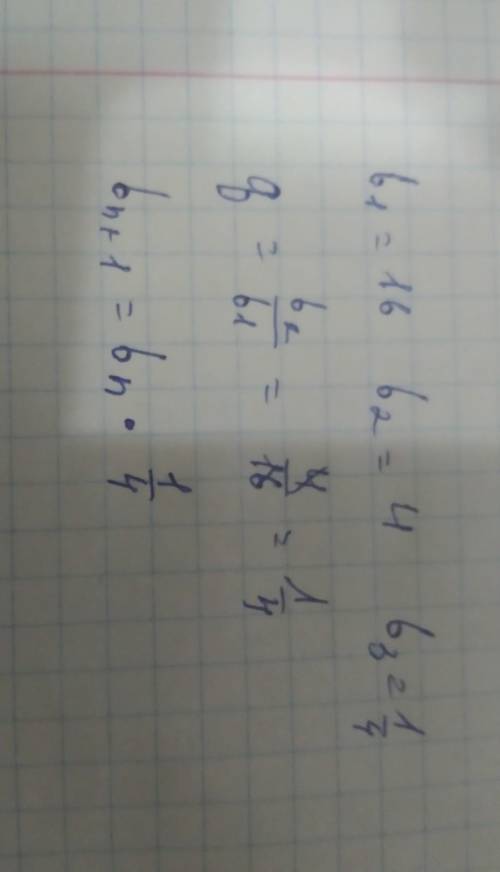 b₁ = 16 b₂ = 4 b₃ = 1/4
q = b₂/b₁ = 4/16 = 1/4
bₙ₊₁ = bₙ · 1/4